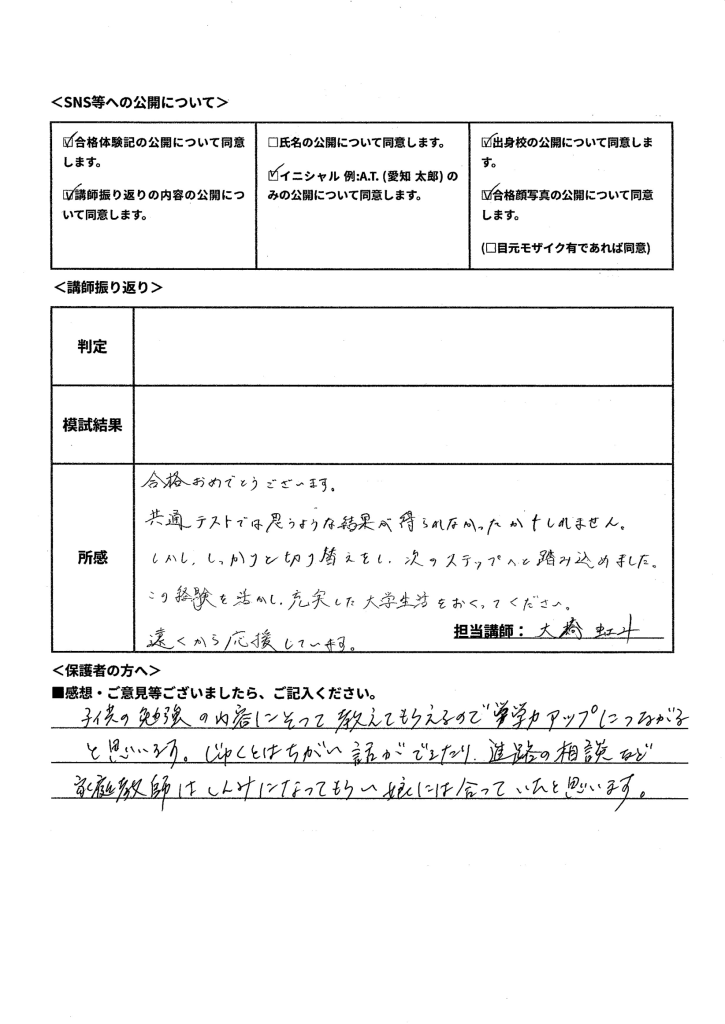 ＜SNS等への公開について＞
☑合格体験記の公開について同意
します。
☑講師振り返りの内容の公開につ
いて同意します。
□氏名の公開について同意します。
☑イニシャル 例:A.T. (愛知 太郎) の
みの公開について同意します。
☑出身校の公開について同意しま
す。
☑合格顔写真の公開について同意
します。
(□目元モザイク有であれば同意)
＜講師振り返り＞
判定
模試結果
所感
合格おめでとうございます。
共通テストでは思うような結果が得られなかったかもしれません。
しかし、しっかりと切り替えをし、次のステップへと踏み込めました。
この経験を活かし、充実した大学生活をおくってください。
遠くから応援しています。
担当講師： 大橋 虹斗
＜保護者の方へ＞
■感想・ご意見等ございましたら、ご記入ください。
子供の勉強の内容にそって教えてもらえるので学力アップにつながる
と思います。じゅくとはちがい話ができたり、進路の相談など
家庭教師はしんみになってもらい娘には合っていたと思います。